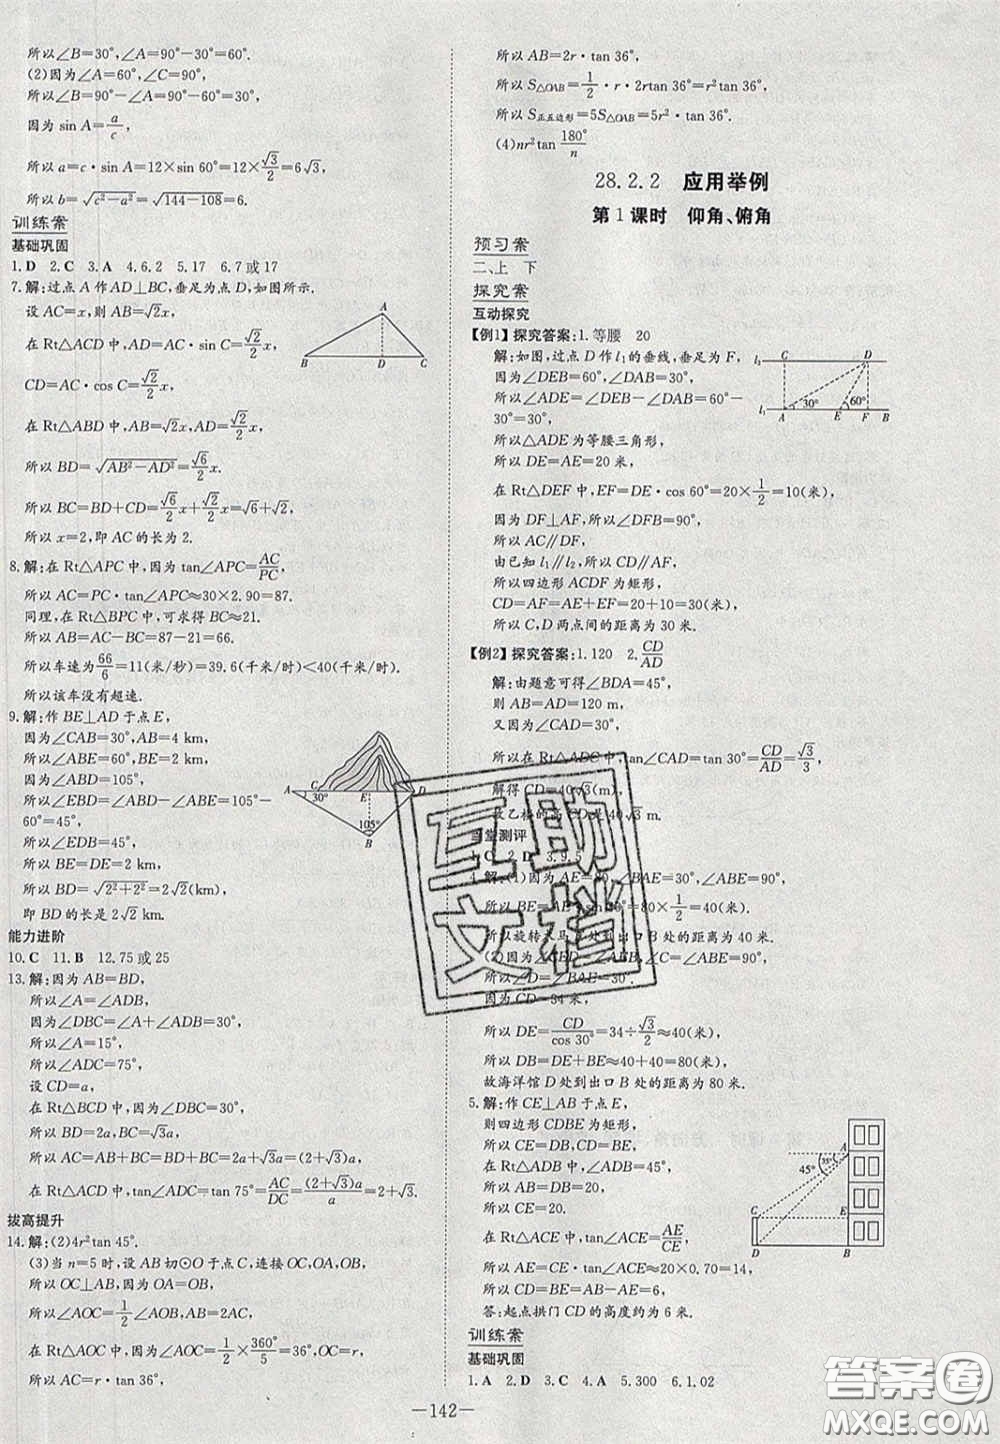 所以∠B=30°,∠A=90°-30°=60°.
(2)因为∠A=60°,∠C=90°,
所以∠B=90°-∠A=90°-60°=30°,
因为 sin A=a/c,
所以 a=c·sin A=12×sin 60°=12×√3/2=6√3,
所以 b=√(c²-a²)=√(144-108)=6.
训练案
基础巩固
1.D 2.C 3.A 4.6.2 5.17 6.7或17
7.解:过点 A 作 AD⊥BC,垂足为点 D,如图所示.
设 AC=x,则 AB=√2x,
在 Rt△ACD 中,AD=AC·sin C=√2/2x,
CD=AC·cos C=√2/2x,
在 Rt△ABD 中,AB=√2x,AD=√2/2x,
所以 BD=√(AB²-AD²)=√6/2x.
所以 BC=BD+CD=√6/2x+√2/2x=√6+√2,
所以 x=2,即 AC 的长为 2.
A
B D C
8.解:在 Rt△APC 中,因为 tan∠APC=AC/PC,
所以 AC=PC·tan∠APC≈30×2.90=87.
同理,在 Rt△BPC 中,可求得 BC≈21.
所以 AB=AC-BC=87-21=66.
所以车速为66/6=11(米/秒)=39.6(千米/时)<40(千米/时).
所以该车没有超速.
9.解:作 BE⊥AD 于点 E,
因为∠CAB=30°,AB=4 km,
所以∠ABE=60°,BE=2 km.
因为∠ABD=105°,
所以∠EBD=∠ABD-∠ABE=105°-
60°=45°,
所以∠EDB=45°,
所以 BE=DE=2 km,
所以 BD=√(2²+2²)=2√2(km),
即 BD 的长是 2√2 km.
A C E D
30°
105°
B
能力进阶
10.C 11.B 12.75或25
13.解:因为 AB=BD,
所以∠A=∠ADB,
因为∠DBC=∠A+∠ADB=30°,
所以∠A=15°,
所以∠ADC=75°,
设 CD=a,
在 Rt△BCD 中,因为∠DBC=30°,
所以 BD=2a,BC=√3a,
所以 AC=AB+BC=BD+BC=2a+√3a=(2+√3)a,
在 Rt△ACD 中,tan∠ADC=tan 75°=AC/DC=(2+√3)a/a=2+√3.
拔高提升
14.解:(2)4r²tan 45°.
(3)当 n=5 时,设 AB 切⊙O 于点 C,连接 OC,OA,OB,
所以 OC⊥AB,因为 OA=OB,
所以∠AOC=1/2∠AOB,AB=2AC,
在 Rt△AOC 中,因为∠AOC=1/2×360°/5=36°,OC=r,
所以 AC=r·tan 36°,
所以 AB=2r·tan 36°,
所以 S△OAB=1/2·r·2rtan 36°=r²·tan 36°,
所以 S正五边形=5S△OAB=5r²·tan 36°.
(4)nr²tan180°/n
28.2.2 应用举例
第1课时 仰角、俯角
预习案
二、上 下
探究案
互动探究
【例1】探究答案:1.等腰 20
解:如图,过点 D 作 l₁的垂线,垂足为 F,
因为∠DEB=60°,∠DAB=30°,
所以∠ADE=∠DEB-∠DAB=60°-
30°=30°,
所以△ADE 为等腰三角形,
所以 DE=AE=20 米,
l₂ C D
30° 60°
l₁ A E F B
在 Rt△DEF 中,EF=DE·cos 60°=20×1/2=10(米),
因为 DF⊥AF,所以∠DFB=90°,
所以 AC∥DF,
由已知 l₁∥l₂,所以 CD∥AF,
所以四边形 ACDF 为矩形,
CD=AF=AE+EF=20+10=30(米),
所以 C,D 两点间的距离为 30 米.
【例2】探究答案:1.120 2.CD/AD
解:由题意可得∠BDA=45°,
则 AB=AD=120 m,
又因为∠CAD=30°,
所以在 Rt△ADC 中,tan∠CAD=tan 30°=CD/AD=√3/3,
解得 CD=40√3(m),
故乙楼的高 CD是 40√3 m.
当堂测评
1.C 2.D 3.9.5
4.解:(1)因为 AE=80,∠BAE=30°,∠ABE=90°,
所以 BE=AE·sin 30°=80×1/2=40(米),
所以旋转木马 E 处到出口 B 处的距离为 40 米.
CD=34 米,
所以 DE=CD/cos 30°=34÷√3/2≈40(米),
所以 DB=DE+BE≈40+40=80(米),
故海洋馆 D 处到出口 B 处的距离为 80 米.
5.解:作 CE⊥AB 于点 E,
则四边形 CDBE 为矩形,
所以 CE=DB,CD=BE,
在 Rt△ADB 中,
因为∠ADB=45°,
所以 AB=DB=20,
所以 CE=20.
在 Rt△ACE 中,tan∠ACE=AE/CE,
所以 AE=CE·tan∠ACE≈20×0.70=14,
所以 CD=BE=AB-AE=6,
答:起点拱门 CD 的高度约为 6 米.
A
45° 35°
C E
D B
训练案
基础巩固
1.A 2.D 3.C 4.A 5.300 6.1.02
—142—
互助文档
答案圈
MXQE.COM